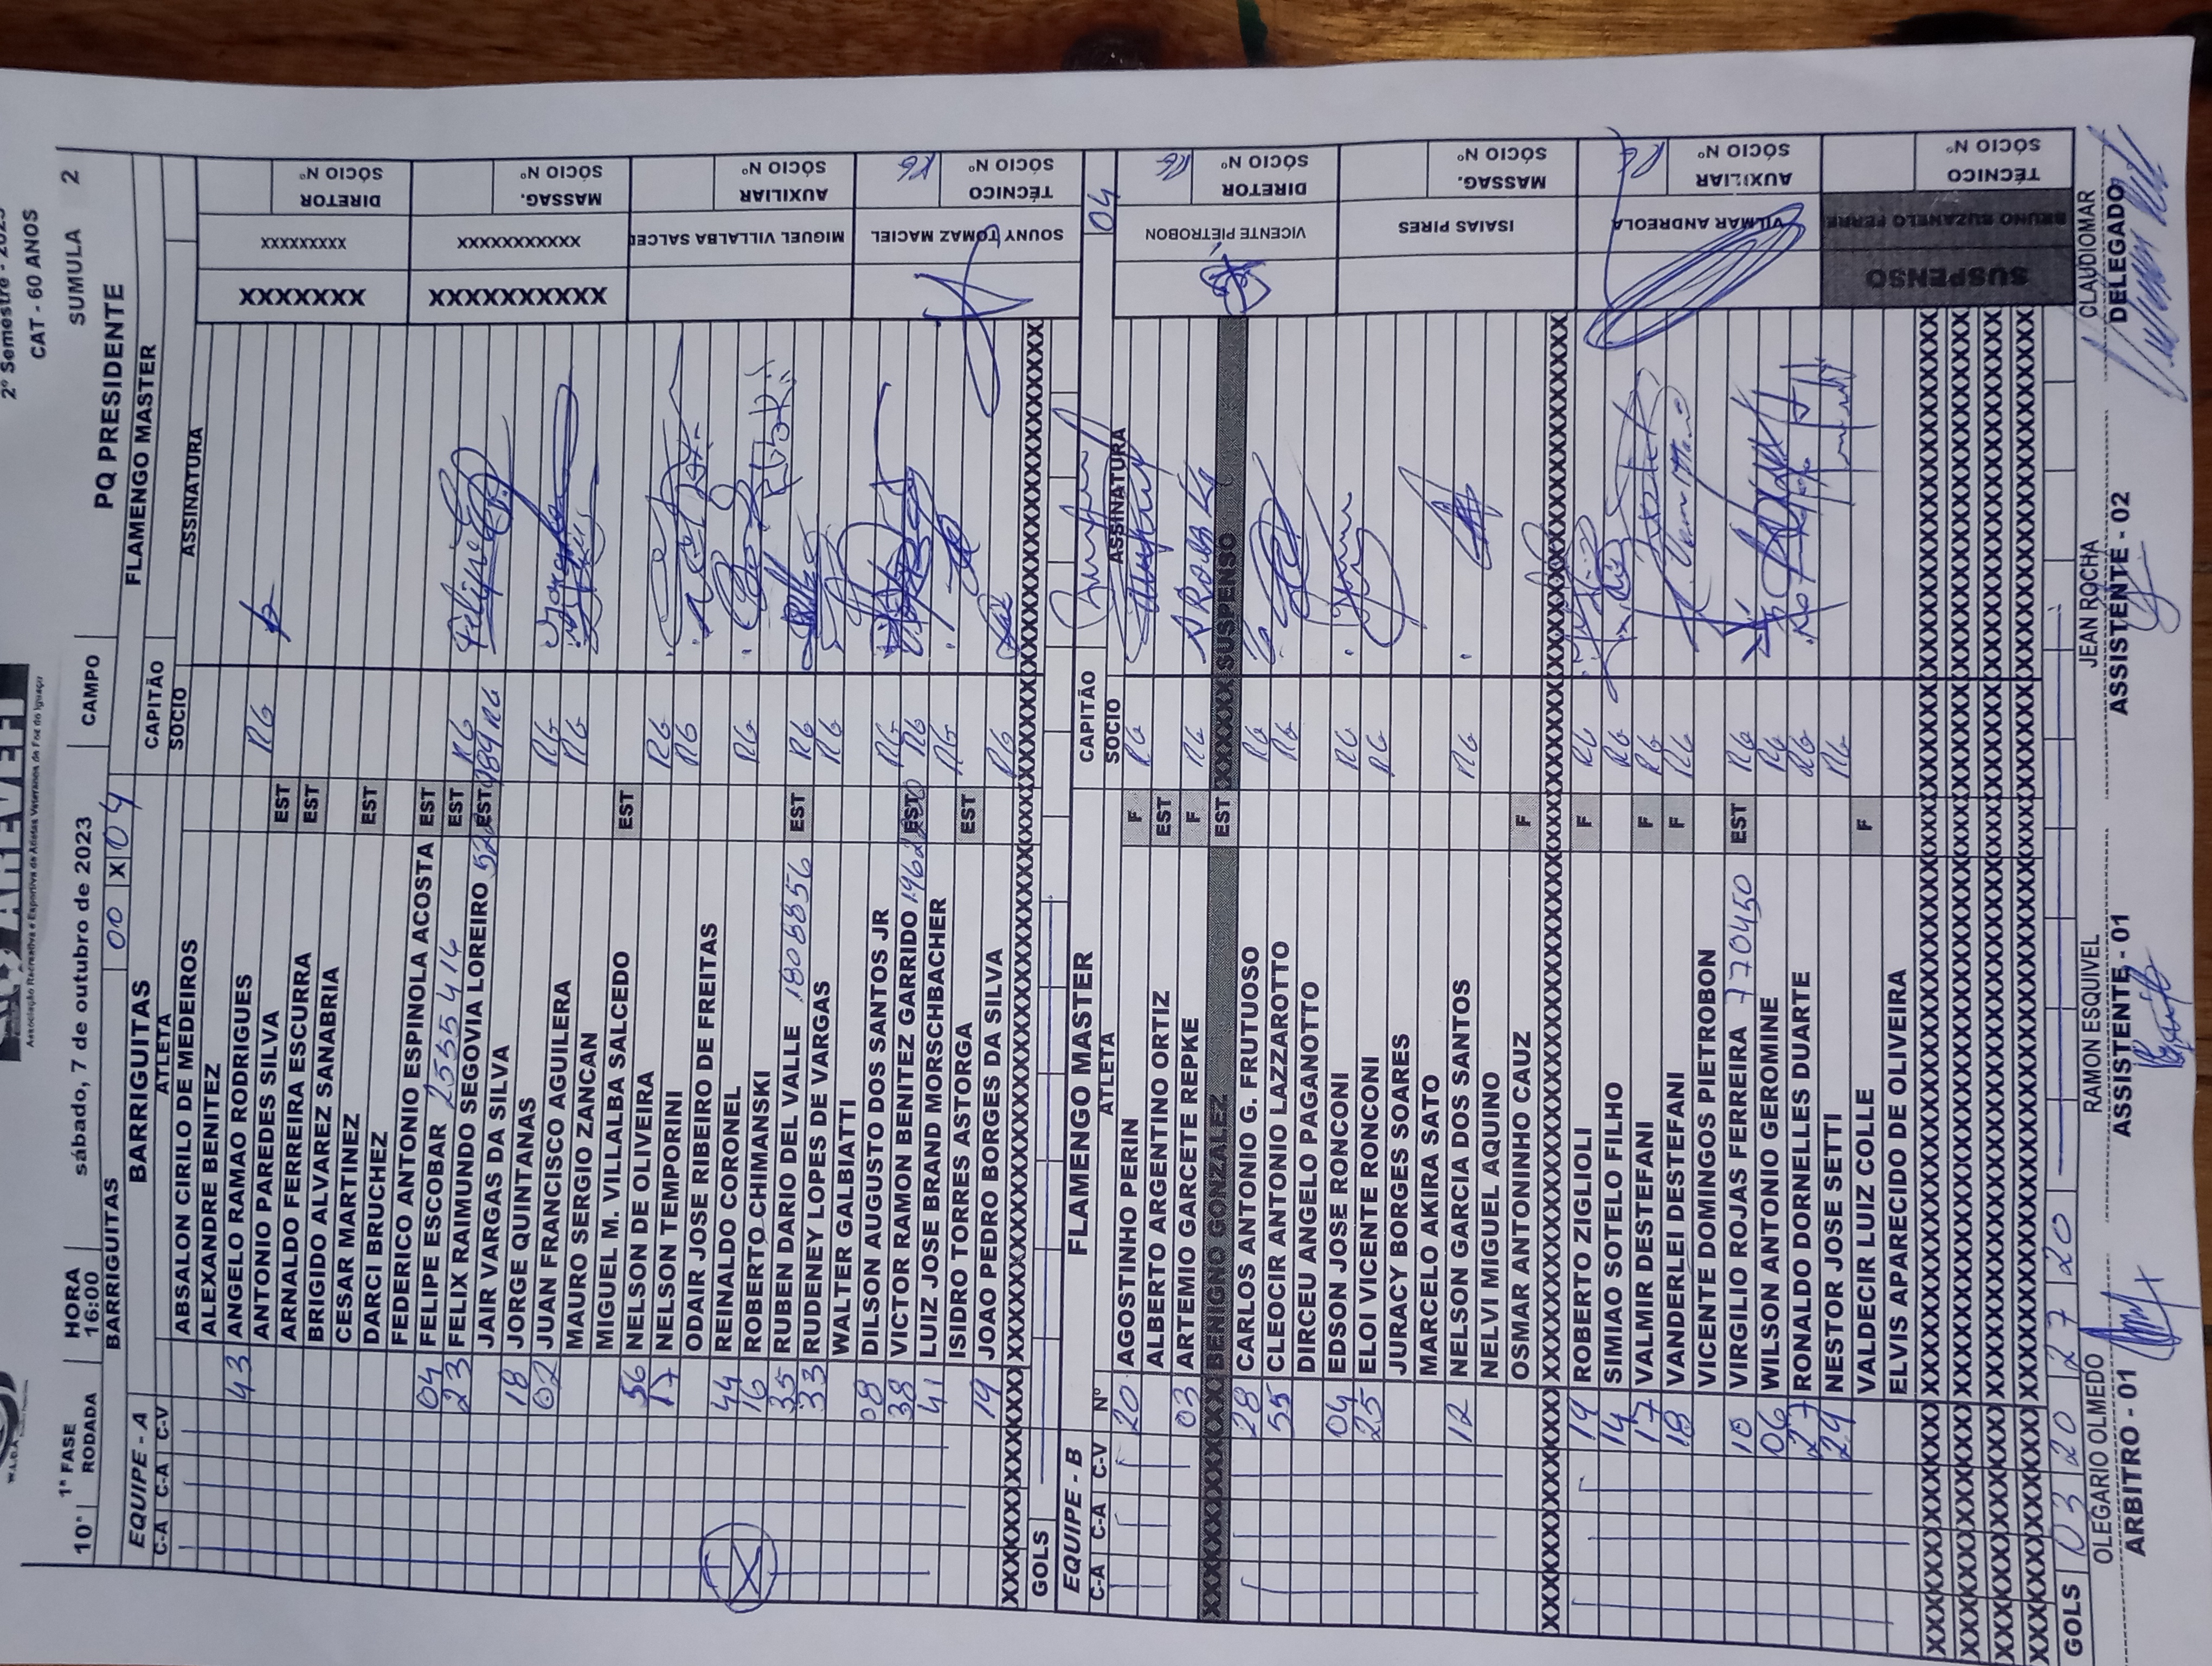 2º Semestre - 2023
CAT - 60 ANOS
Associação Recreativa e Esportiva de Atletas Veteranos de Foz do Iguaçu
10ª 1ª FASE RODADA HORA 16:00 sábado, 7 de outubro de 2023 CAMPO PQ PRESIDENTE SUMULA 2
BARRIGUITAS 00 X 04 FLAMENGO MASTER
EQUIPE - A BARRIGUITAS CAPITÃO
C-A C-A C-V ATLETA SOCIO ASSINATURA
ABSALON CIRILO DE MEDEIROS
ALEXANDRE BENITEZ
43 ANGELO RAMAO RODRIGUES RG
ANTONIO PAREDES SILVA EST
ARNALDO FERREIRA ESCURRA EST
BRIGIDO ALVAREZ SANABRIA
CESAR MARTINEZ EST
DARCI BRUCHEZ
FEDERICO ANTONIO ESPINOLA ACOSTA EST
04 FELIPE ESCOBAR 2555414 EST RG
23 FELIX RAIMUNDO SEGOVIA LOREIRO EST RG
JAIR VARGAS DA SILVA
18 JORGE QUINTANAS RG
02 JUAN FRANCISCO AGUILERA RG
MAURO SERGIO ZANCAN
MIGUEL M. VILLALBA SALCEDO EST
56 NELSON DE OLIVEIRA RG
17 NELSON TEMPORINI RG
ODAIR JOSE RIBEIRO DE FREITAS
44 REINALDO CORONEL RG
16 ROBERTO CHIMANSKI
35 RUBEN DARIO DEL VALLE 1808856 EST RG
33 RUDENEY LOPES DE VARGAS RG
WALTER GALBIATTI
08 DILSON AUGUSTO DOS SANTOS JR RG
38 VICTOR RAMON BENITEZ GARRIDO EST RG
41 LUIZ JOSE BRAND MORSCHBACHER RG
ISIDRO TORRES ASTORGA EST
19 JOAO PEDRO BORGES DA SILVA RG
GOLS
XXXXXXX XXXXXXXXX DIRETOR SÓCIO Nº
XXXXXXXXXX XXXXXXXXXXX MASSAG. SÓCIO Nº
MIGUEL VILLALBA SALCED AUXILIAR SÓCIO Nº
SOUNY TOMAZ MACIEL TÉCNICO SÓCIO Nº RG
EQUIPE - B FLAMENGO MASTER CAPITÃO 04
C-A C-A C-V Nº ATLETA SOCIO ASSINATURA
20 AGOSTINHO PERIN F RG
ALBERTO ARGENTINO ORTIZ EST
03 ARTEMIO GARCETE REPKE F RG
XXXXXXXX BENIGNO GONZALEZ EST XXXXXX SUSPENSO
28 CARLOS ANTONIO G. FRUTUOSO RG
55 CLEOCIR ANTONIO LAZZAROTTO RG
DIRCEU ANGELO PAGANOTTO
04 EDSON JOSE RONCONI RG
25 ELOI VICENTE RONCONI RG
JURACY BORGES SOARES
MARCELO AKIRA SATO
12 NELSON GARCIA DOS SANTOS RG
NELVI MIGUEL AQUINO
OSMAR ANTONINHO CAUZ F
19 ROBERTO ZIGLIOLI F RG
14 SIMIAO SOTELO FILHO RG
17 VALMIR DESTEFANI F RG
18 VANDERLEI DESTEFANI F RG
VICENTE DOMINGOS PIETROBON
10 VIRGILIO ROJAS FERREIRA 770450 EST RG
06 WILSON ANTONIO GEROMINE RG
27 RONALDO DORNELLES DUARTE RG
29 NESTOR JOSE SETTI RG
VALDECIR LUIZ COLLE F
ELVIS APARECIDO DE OLIVEIRA
VICENTE PIETROBON DIRETOR SÓCIO Nº RG
ISAIAS PIRES MASSAG. SÓCIO Nº
VILMAR ANDREOLA AUXILIAR SÓCIO Nº RG
SUSPENSO BRUNO BUZANELO FERRE TÉCNICO SÓCIO Nº
GOLS 03 20 27 20
OLEGARIO OLMEDO RAMON ESQUIVEL JEAN ROCHA CLAUDIOMAR
ARBITRO - 01 ASSISTENTE - 01 ASSISTENTE - 02 DELEGADO